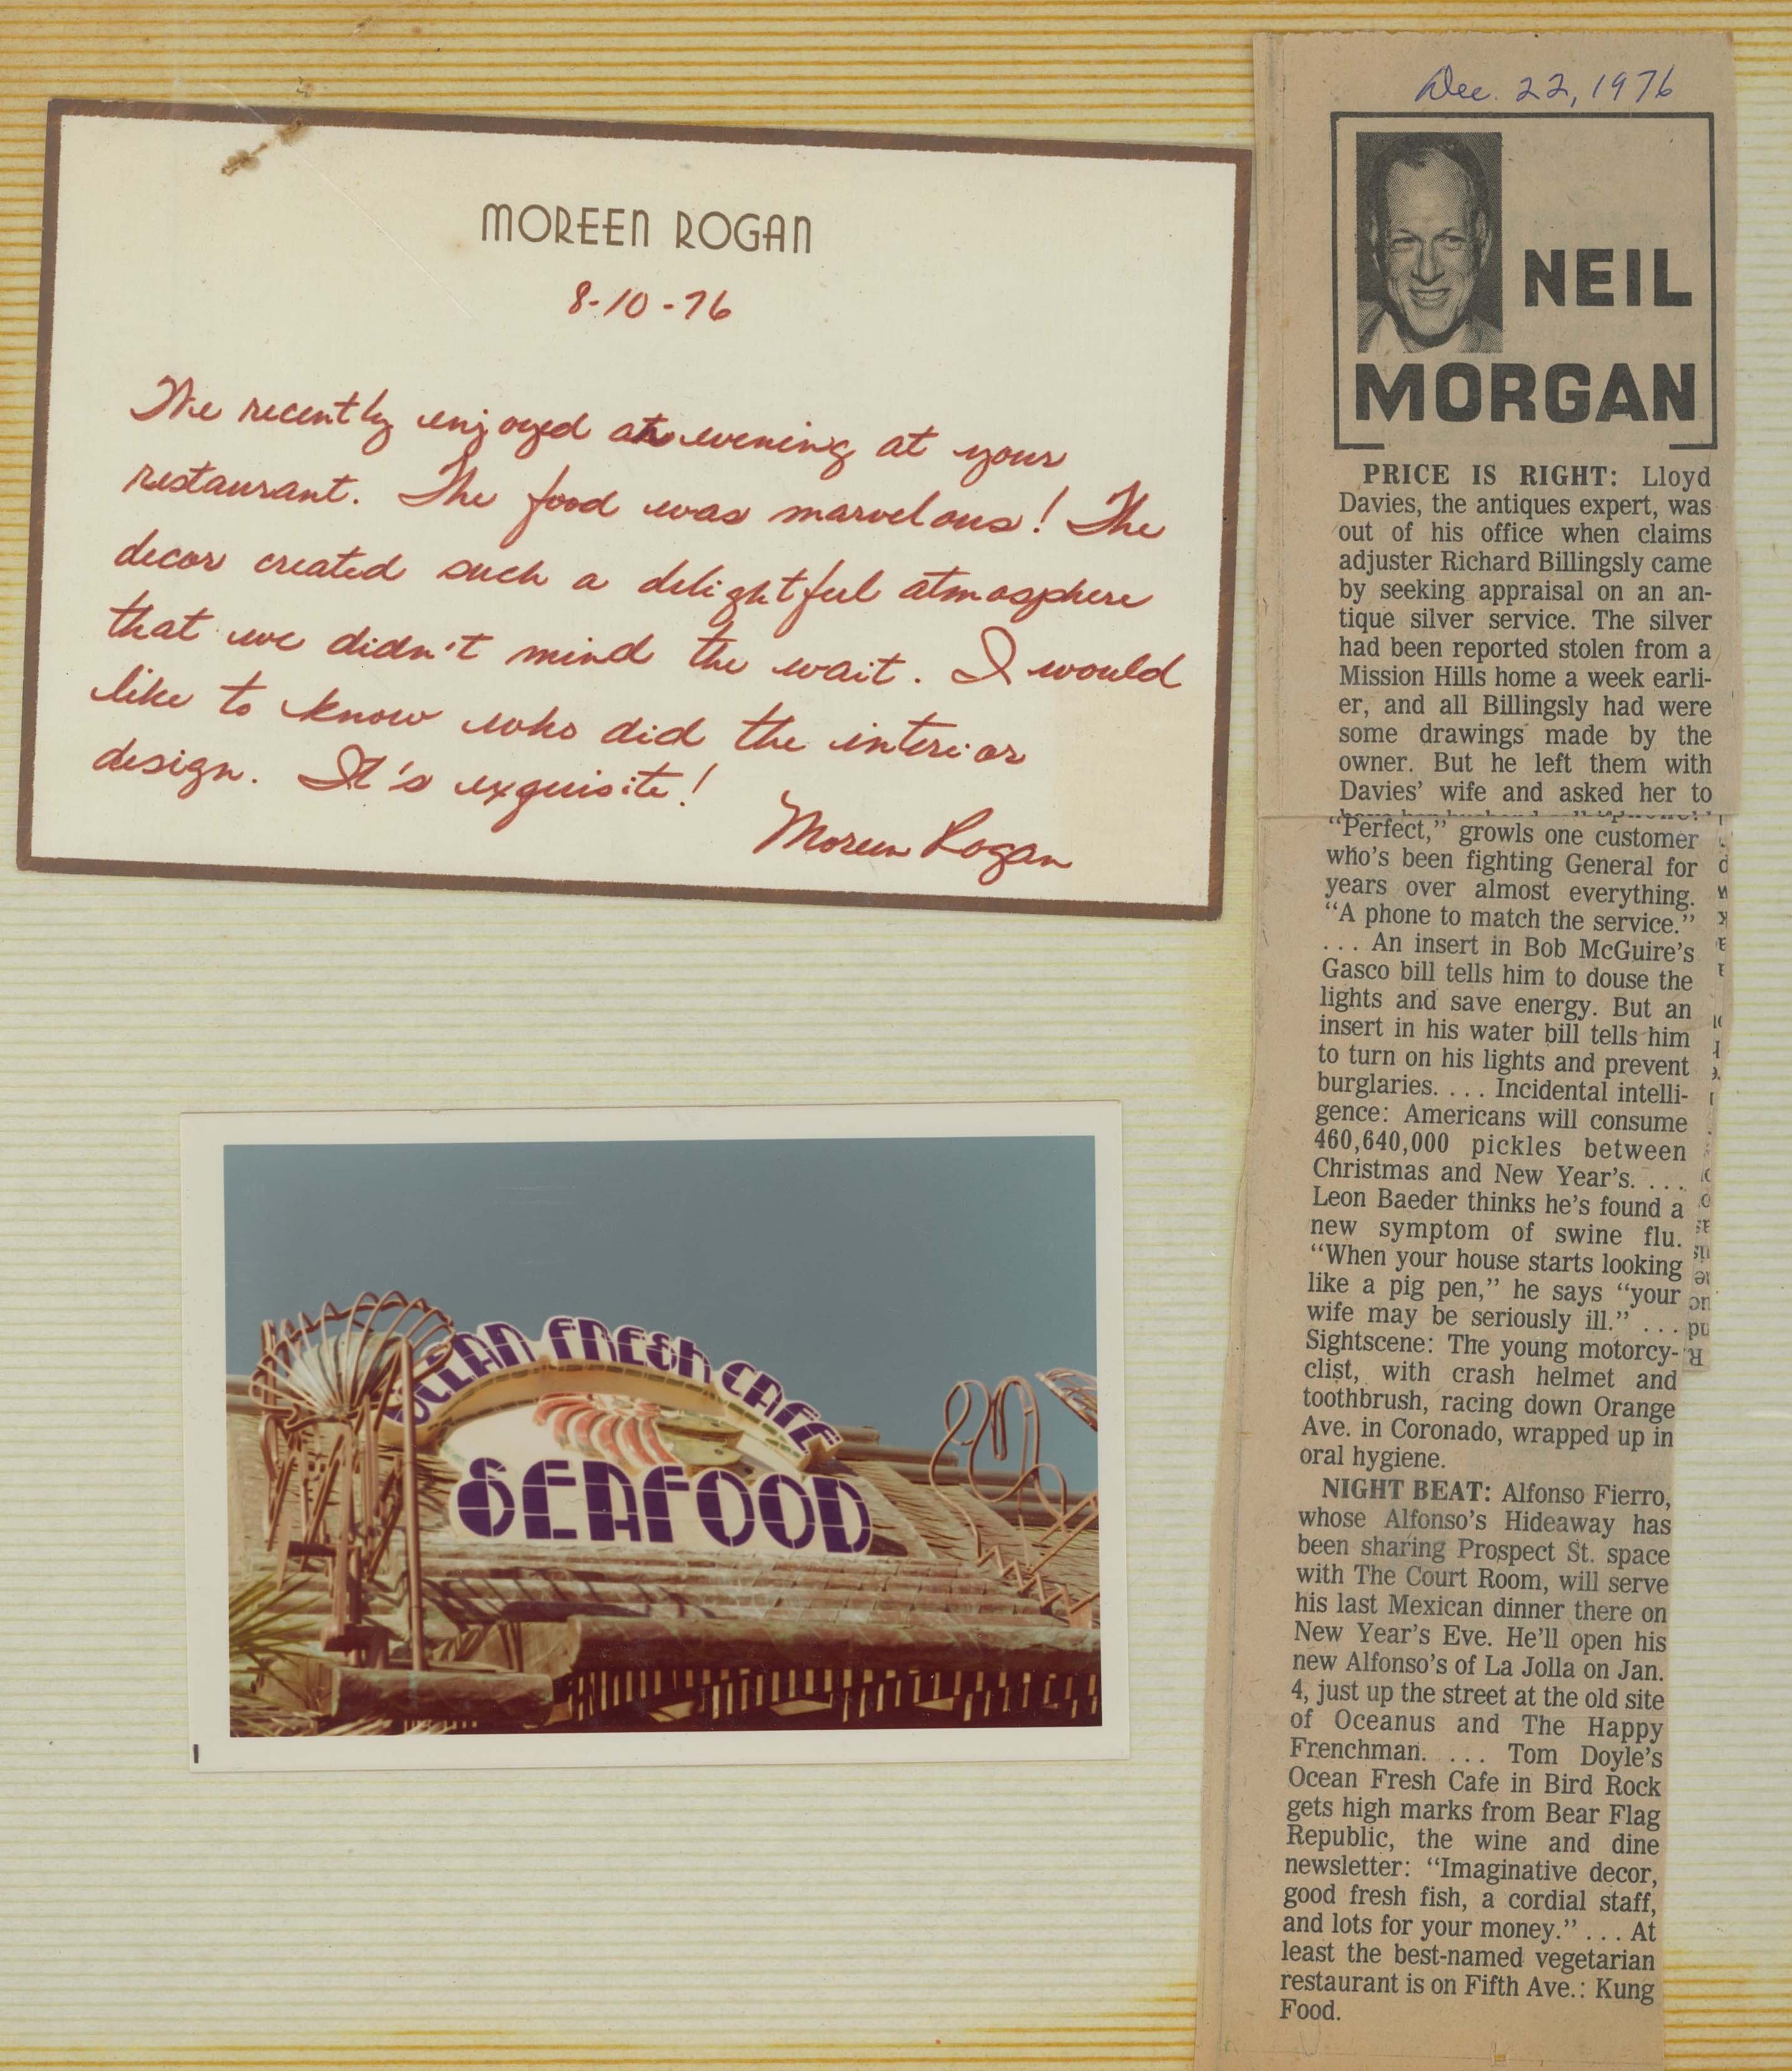 MOREEN ROGAN
8-10-76
We recently enjoyed an evening at your
restaurant. The food was marvelous! The
decor created such a delightful atmosphere
that we didn't mind the wait. I would
like to know who did the interior
design. It's exquisite!
Moreen Rogan
OCEAN FRESH CAFE
SEAFOOD
Dec. 22, 1976
NEIL
MORGAN
PRICE IS RIGHT: Lloyd
Davies, the antiques expert, was
out of his office when claims
adjuster Richard Billingsly came
by seeking appraisal on an an-
tique silver service. The silver
had been reported stolen from a
Mission Hills home a week earli-
er, and all Billingsly had were
some drawings made by the
owner. But he left them with
Davies' wife and asked her to
“Perfect,” growls one customer
who's been fighting General for
years over almost everything.
“A phone to match the service.”
... An insert in Bob McGuire's
Gasco bill tells him to douse the
lights and save energy. But an
insert in his water bill tells him
to turn on his lights and prevent
burglaries. . . . Incidental intelli-
gence: Americans will consume
460,640,000 pickles between
Christmas and New Year's. . . .
Leon Baeder thinks he's found a
new symptom of swine flu.
“When your house starts looking
like a pig pen,” he says “your
wife may be seriously ill.” . . .
Sightscene: The young motorcy-
clist, with crash helmet and
toothbrush, racing down Orange
Ave. in Coronado, wrapped up in
oral hygiene.
NIGHT BEAT: Alfonso Fierro,
whose Alfonso's Hideaway has
been sharing Prospect St. space
with The Court Room, will serve
his last Mexican dinner there on
New Year's Eve. He'll open his
new Alfonso's of La Jolla on Jan.
4, just up the street at the old site
of Oceanus and The Happy
Frenchman. . . . Tom Doyle's
Ocean Fresh Cafe in Bird Rock
gets high marks from Bear Flag
Republic, the wine and dine
newsletter: “Imaginative decor,
good fresh fish, a cordial staff,
and lots for your money.” . . . At
least the best-named vegetarian
restaurant is on Fifth Ave.: Kung
Food.